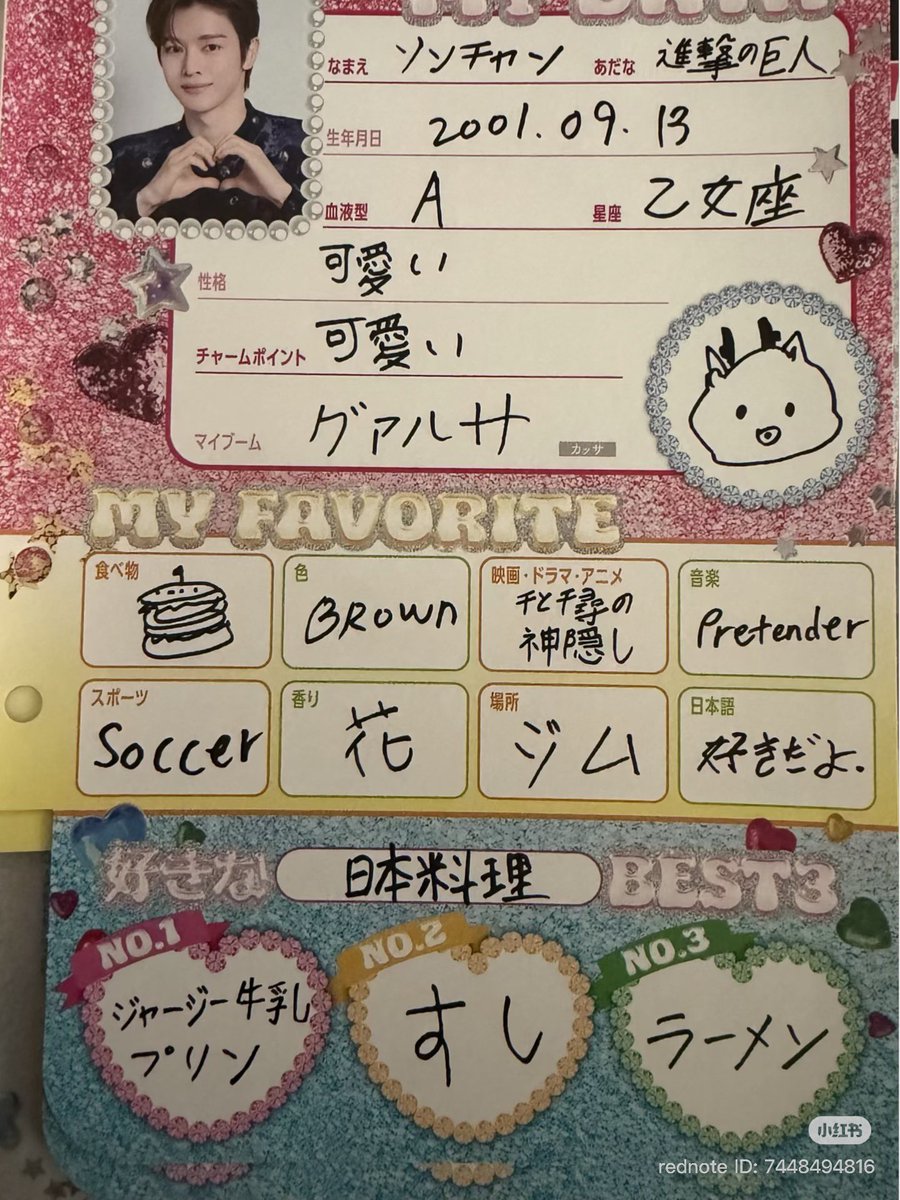 MY DATA
なまえ ソンチャン あだな 進撃の巨人
生年月日 2001.09.13
血液型 A 星座 乙女座
性格 可愛い
チャームポイント 可愛い
マイブーム グァルサ
カッサ
MY FAVORITE
食べ物
色
BROWN
映画・ドラマ・アニメ
千と千尋の
神隠し
音楽
Pretender
スポーツ
Soccer
香り
花
場所
ジム
日本語
好きだよ.
好きな 日本料理 BEST3
NO.1
ジャージー牛乳
プリン
NO.2
すし
NO.3
ラーメン
小红书
rednote ID: 7448494816